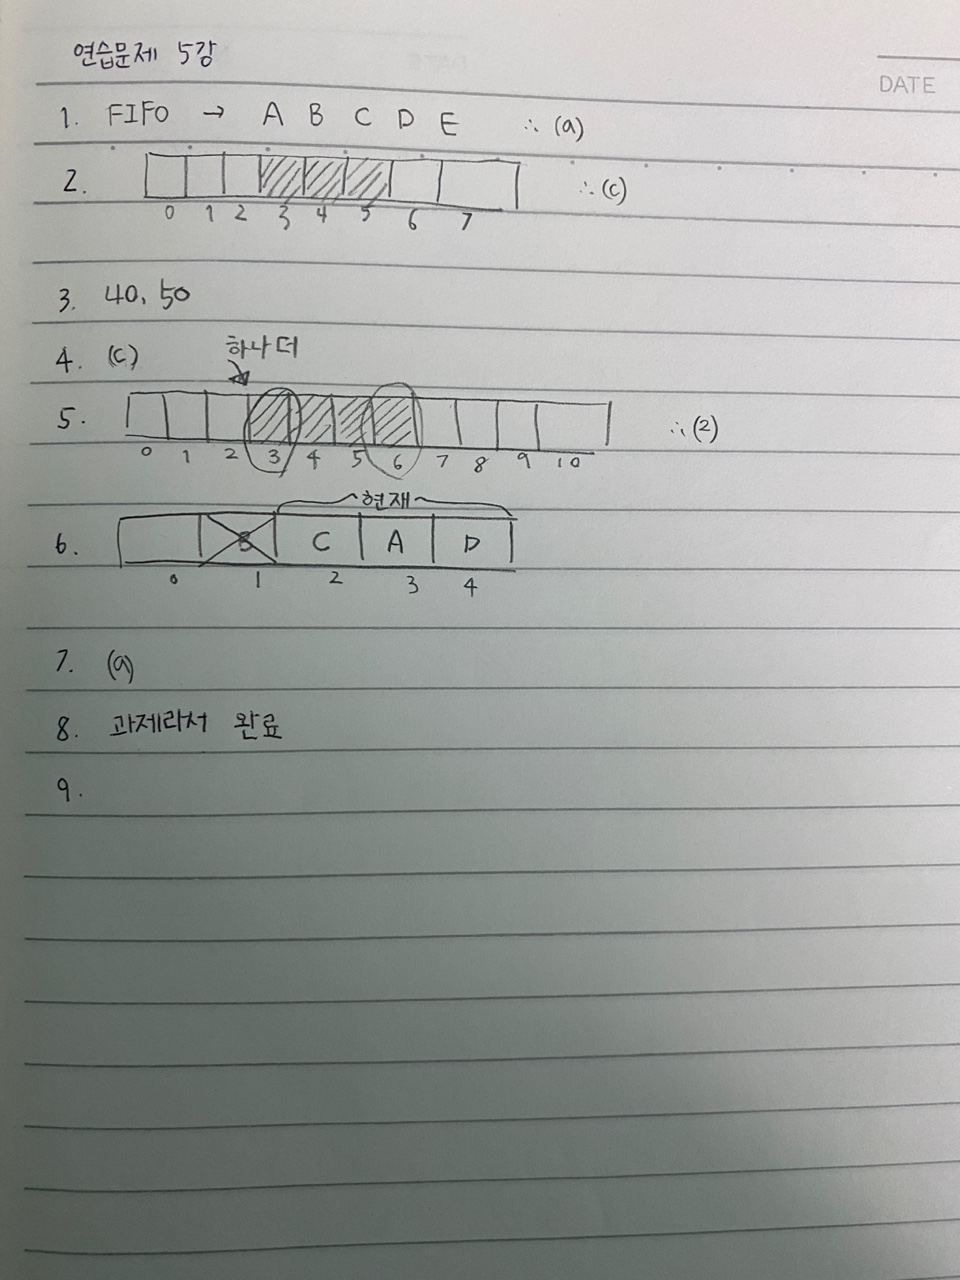 연습문제 5강
DATE
1. FIFO → A B C D E ∴ (a)
2. ∴ (c)
0 1 2 3 4 5 6 7
3. 40, 50
4. (c)
하나 더
5. ∴ (2)
0 1 2 3 4 5 6 7 8 9 10
현재
6. B C A D
0 1 2 3 4
7. (a)
8. 과제라서 완료
9.